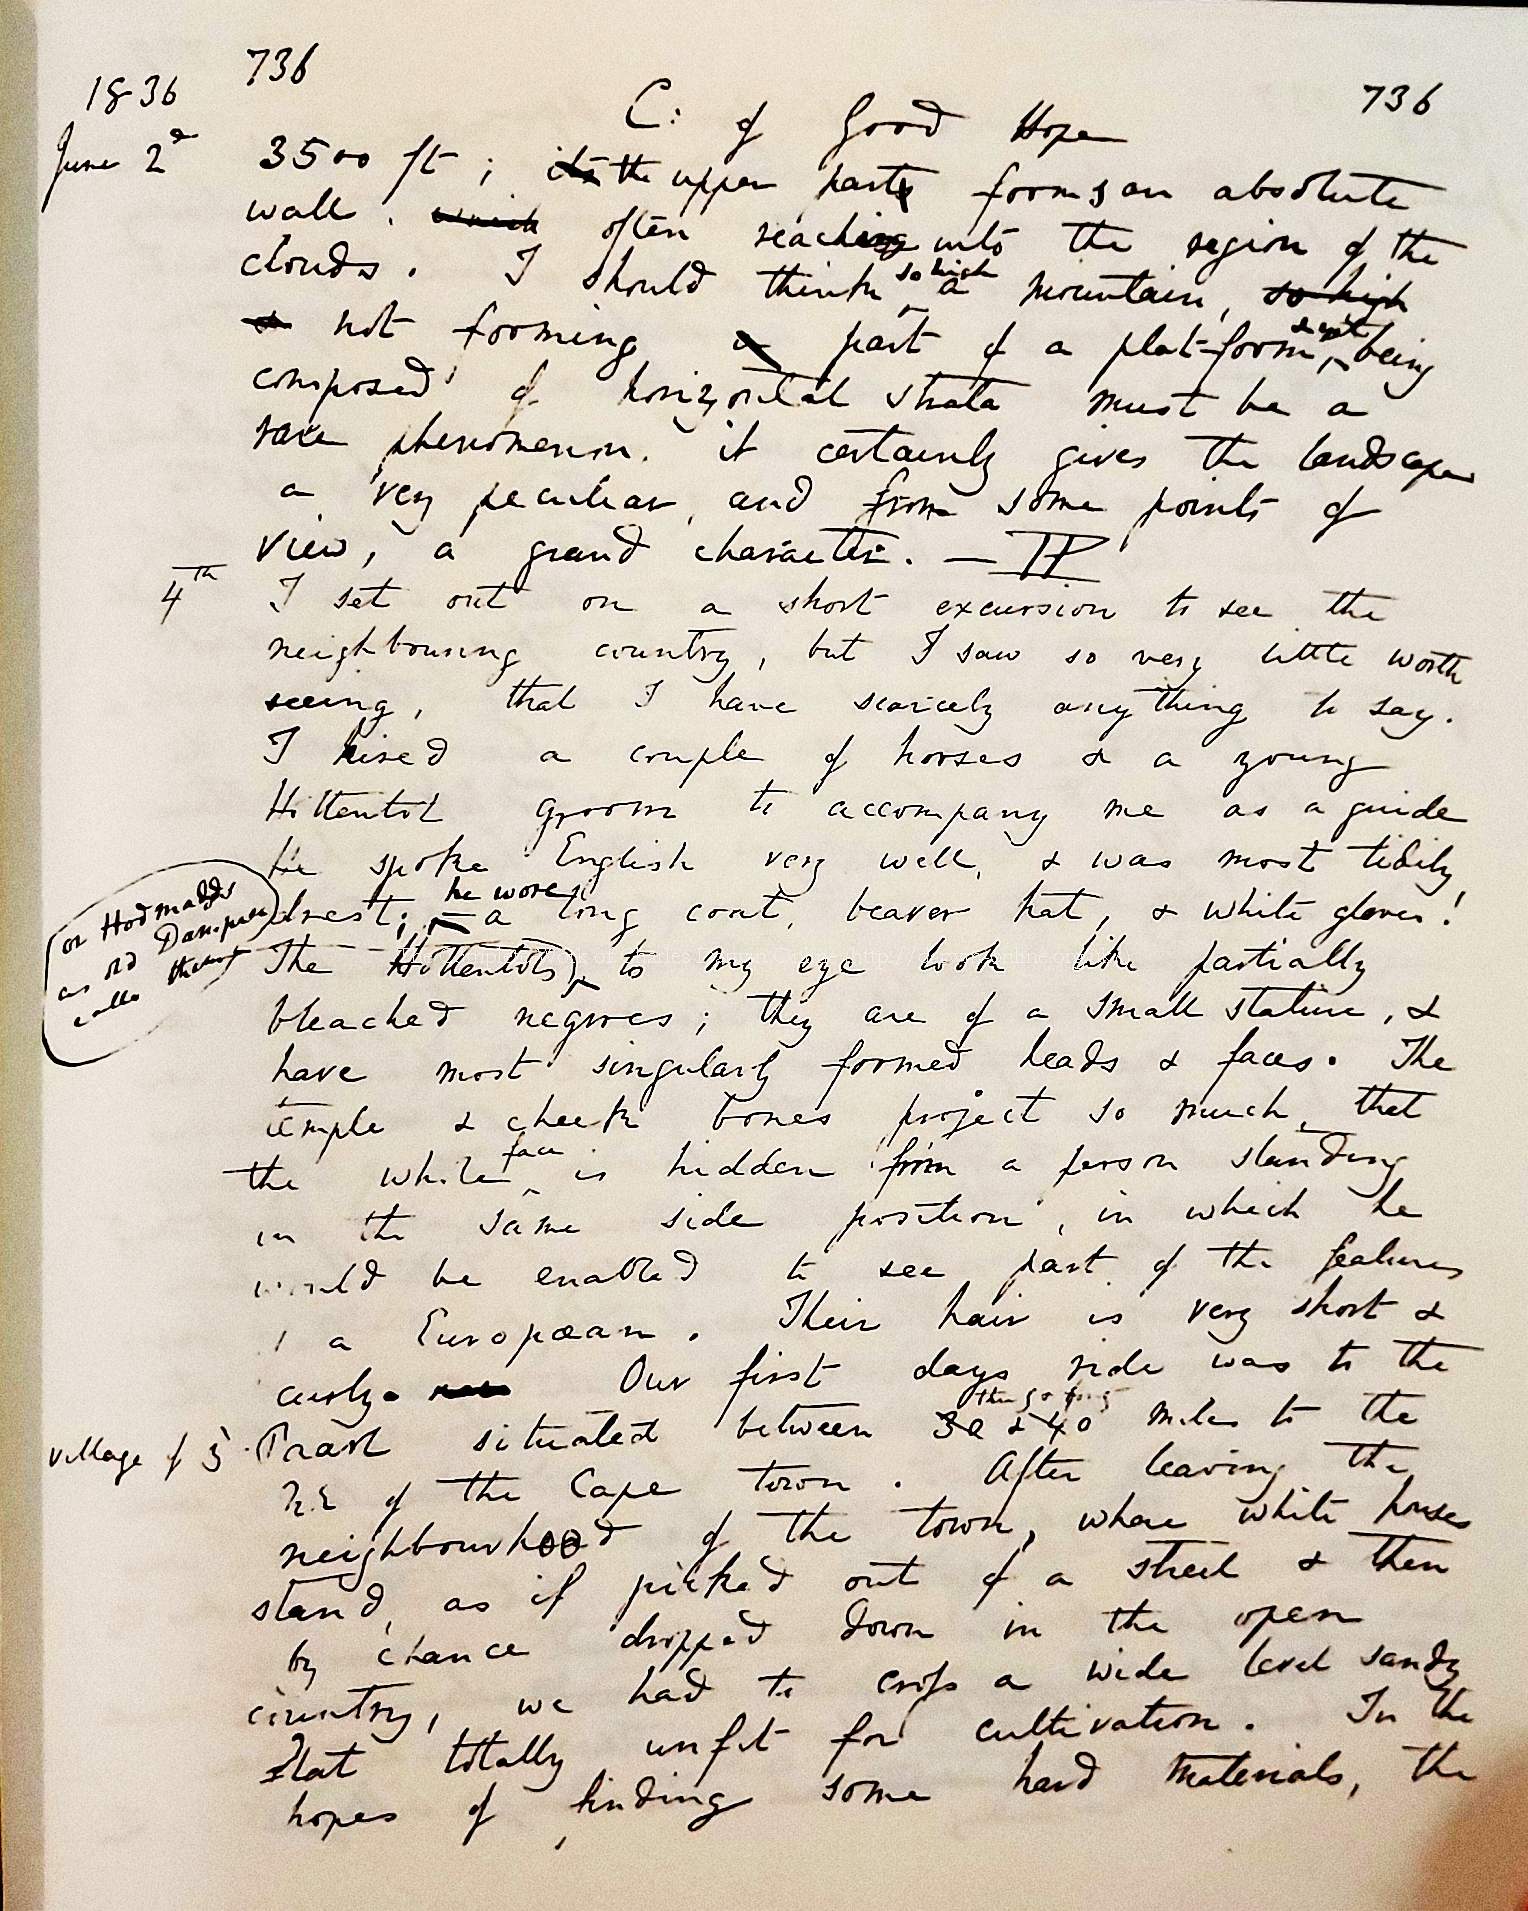 736
1836
736
C: of Good Hope
June 2d
3500 ft; its the upper parts forms an absolute
wall. which often reaching into the region of the
clouds. I should think so high a mountain, so high
& not forming a part of a plat-form, & yet being
composed of horizontal strata must be a
rare phenomenon. it certainly gives the landscape
a very peculiar, and from some points of
view, a grand character. —
4th I set out on a short excursion to see the
neighbouring country, but I saw so very little worth
seeing, that I have scarcely anything to say.
I hired a couple of horses & a young
Hottentot groom to accompany me as a guide
He spoke English very well, & was most tidily
drest; he wore a long coat, beaver hat, & white gloves!
or Hodmadds
as old Dampier
calls them
The Hottentots, to my eye look like partially
bleached negroes; they are of a small stature, &
have most singularly formed heads & faces. The
temple & cheek bones project so much, that
the whole face is hidden from a person standing
in the same side position, in which he
would be enabled to see part of the features
of a Europæan. Their hair is very short &
curly. Our first days ride was to the
village of Paarl situated between 30 & 40 miles to the
N.E of the Cape town. After leaving the
neighbourhood of the town, where white houses
stand, as if picked out of a street & then
by chance dropped down in the open
country, we had to cross a wide level sandy
flat totally unfit for cultivation. In the
hopes of finding some hard materials, the